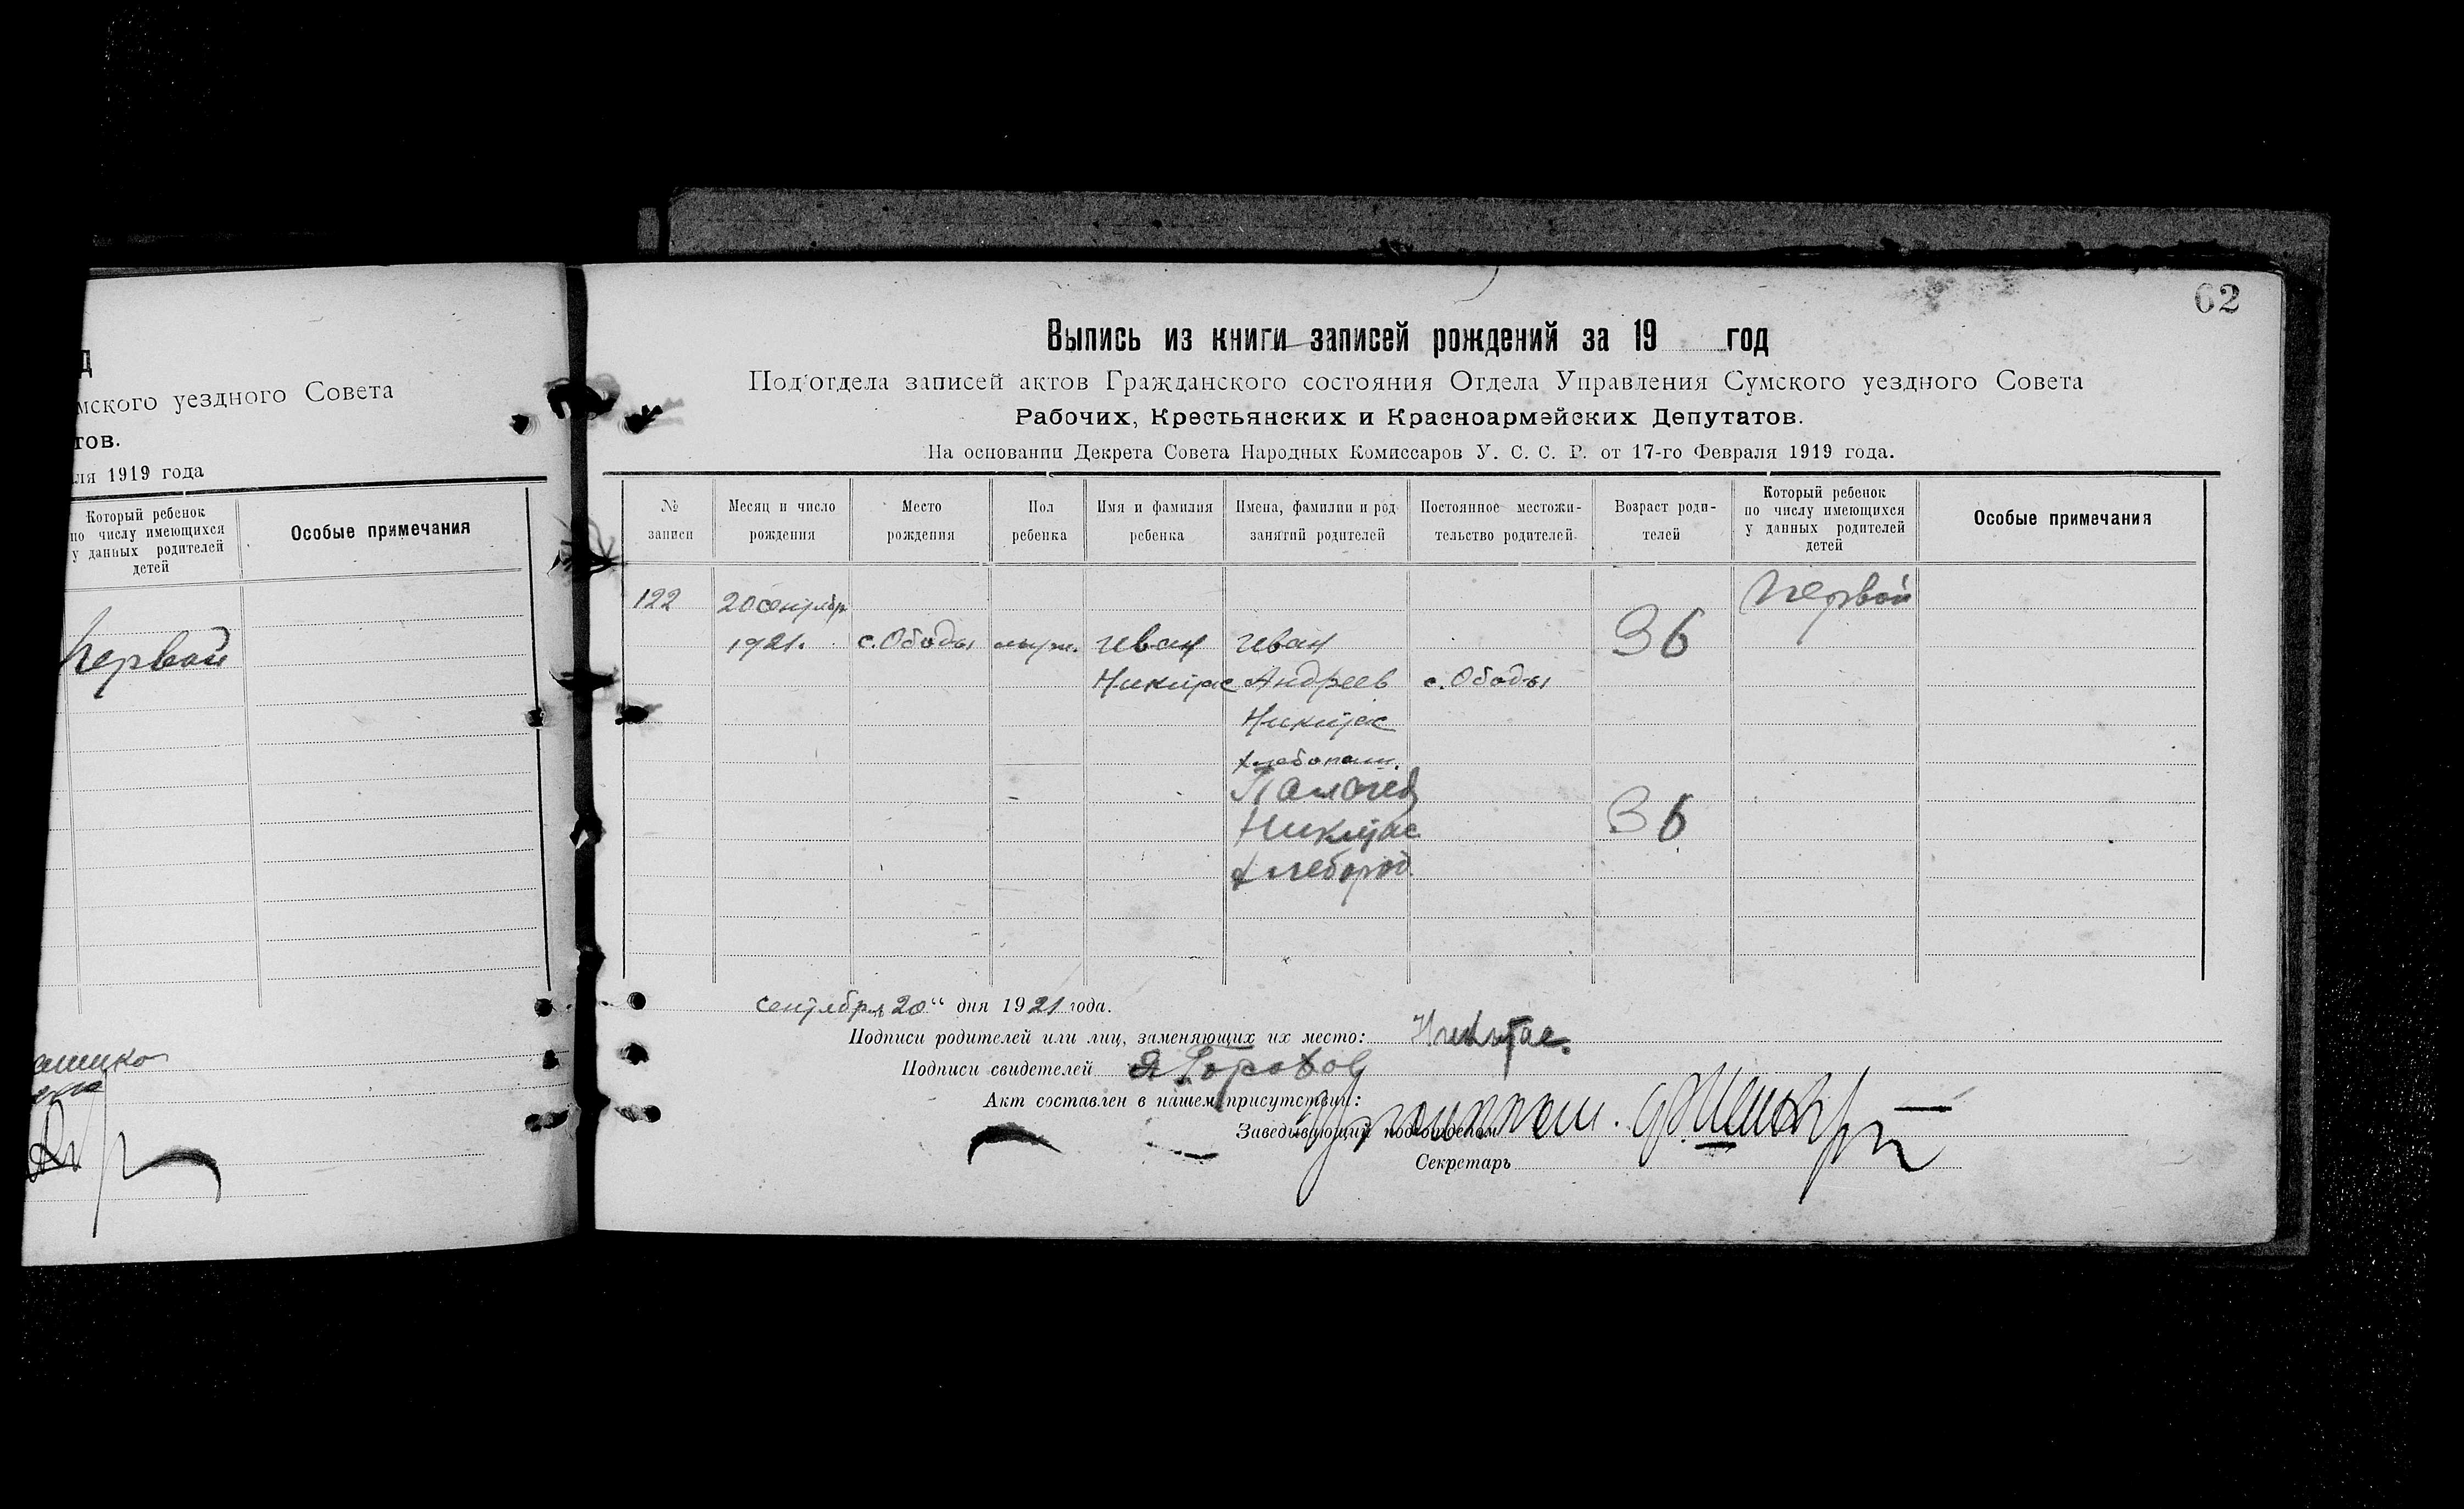 д
мского уездного Совета
тов.
ля 1919 года
Который ребенок
по числу имеющихся
у данных родителей
детей
Особые примечания
Первый
62
Выпись из книги записей рождений за 19 год
Под'отдела записей актов Гражданского состояния Отдела Управления Сумского уездного Совета
Рабочих, Крестьянских и Красноармейских Депутатов.
На основании Декрета Совета Народных Комиссаров У. С. С. Р. от 17-го Февраля 1919 года.
№
записи
Месяц и число
рождения
Место
рождения
Пол
ребенка
Имя и фамилия
ребенка
Имена, фамилии и род
занятий родителей
Постоянное местожи-
тельство родителей
Возраст роди-
телей
Который ребенок
по числу имеющихся
у данных родителей
детей
Особые примечания
122
20 сентябр
1921.
с. Ободы
муж.
Иван
Никитас
Иван
Андреев
Никитас
хлебопаш.
Никитас
хлебород
с. Ободы
36
36
Первый
сентября 20" дня 1921 года.
Подписи родителей или лиц, заменяющих их место: Никитас.
Подписи свидетелей Горохов
Акт составлен в нашем присутствии:
Заведывающий подотделом
Секретарь